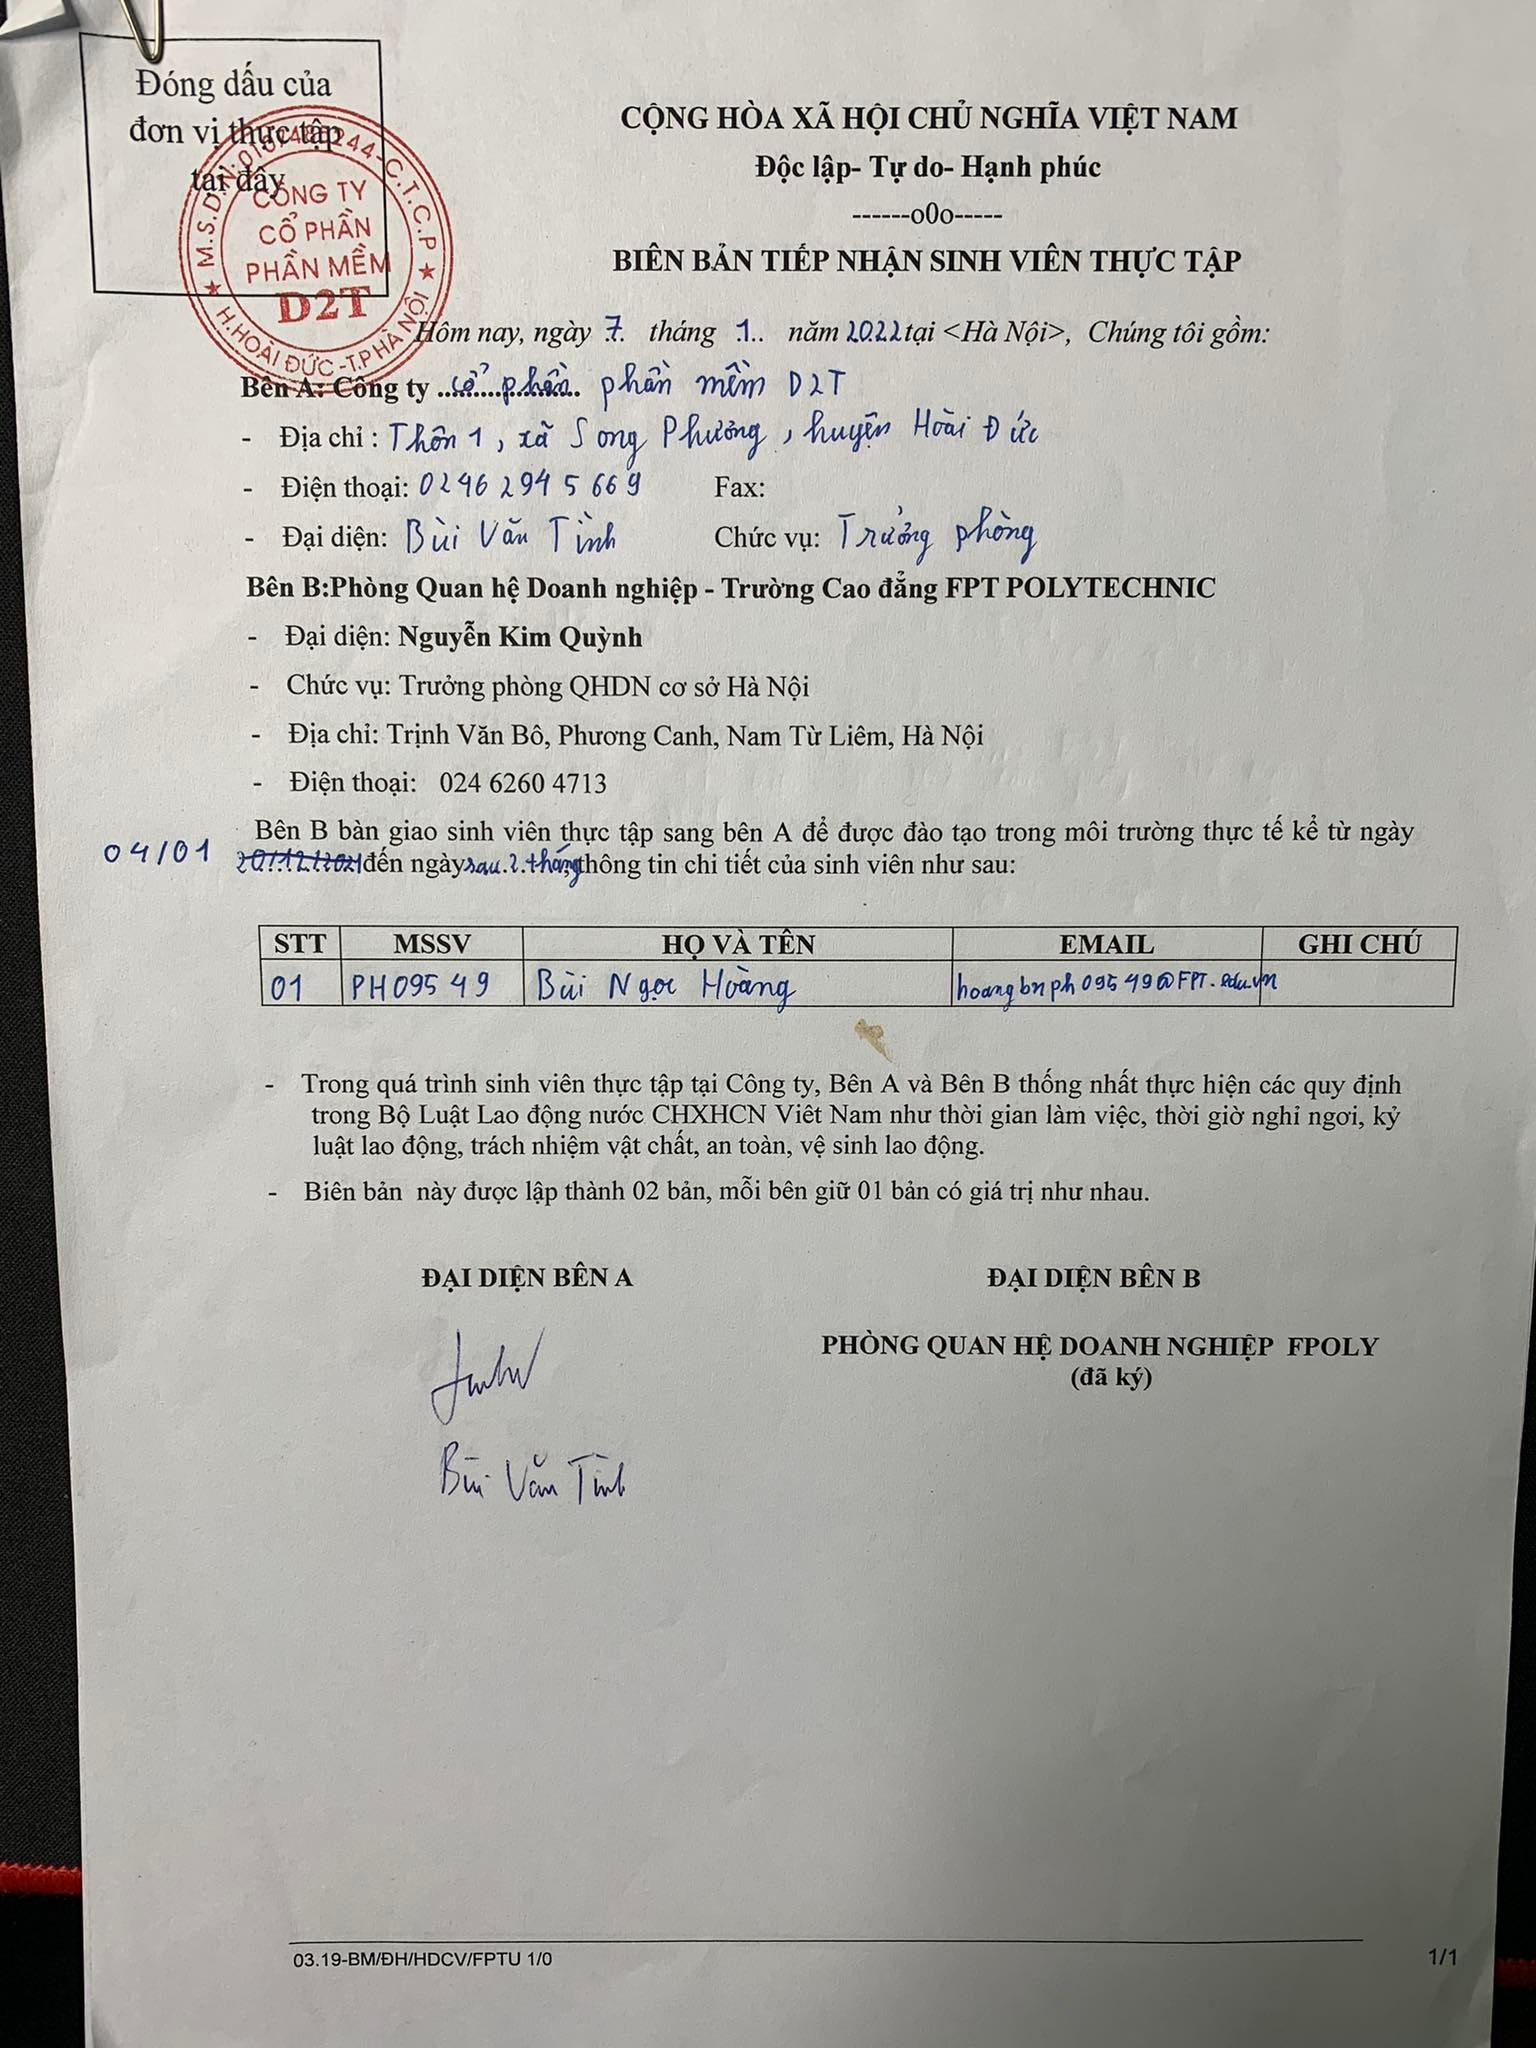 Đóng dấu của
đơn vị thực tập
tại đây
C.T.C.P
CÔNG TY
CỔ PHẦN
PHẦN MỀM
D2T
H.HOÀI ĐỨC -T.P HÀ NỘI
CỘNG HÒA XÃ HỘI CHỦ NGHĨA VIỆT NAM
Độc lập- Tự do- Hạnh phúc
------o0o-----
BIÊN BẢN TIẾP NHẬN SINH VIÊN THỰC TẬP
Hôm nay, ngày 7 tháng 1.. năm 2022 tại <Hà Nội>, Chúng tôi gồm:
Bên A: Công ty cổ phần phần mềm D2T
- Địa chỉ : Thôn 1, xã Song Phương, huyện Hoài Đức
- Điện thoại: 0246 294 5 669 Fax:
- Đại diện: Bùi Văn Tình Chức vụ: Trưởng phòng
Bên B:Phòng Quan hệ Doanh nghiệp - Trường Cao đẳng FPT POLYTECHNIC
- Đại diện: Nguyễn Kim Quỳnh
- Chức vụ: Trưởng phòng QHDN cơ sở Hà Nội
- Địa chỉ: Trịnh Văn Bô, Phương Canh, Nam Từ Liêm, Hà Nội
- Điện thoại: 024 6260 4713
Bên B bàn giao sinh viên thực tập sang bên A để được đào tạo trong môi trường thực tế kể từ ngày
04/01 20/12/2021 đến ngày sau 2 tháng thông tin chi tiết của sinh viên như sau:
STT MSSV HỌ VÀ TÊN EMAIL GHI CHÚ
01 PH09549 Bùi Ngọc Hoàng hoangbnph09549@FPT.edu.vn
- Trong quá trình sinh viên thực tập tại Công ty, Bên A và Bên B thống nhất thực hiện các quy định
trong Bộ Luật Lao động nước CHXHCN Viêt Nam như thời gian làm việc, thời giờ nghỉ ngơi, kỷ
luật lao động, trách nhiệm vật chất, an toàn, vệ sinh lao động.
- Biên bản này được lập thành 02 bản, mỗi bên giữ 01 bản có giá trị như nhau.
ĐẠI DIỆN BÊN A ĐẠI DIỆN BÊN B
PHÒNG QUAN HỆ DOANH NGHIỆP FPOLY
(đã ký)
Bùi Văn Tình
03.19-BM/ĐH/HDCV/FPTU 1/0 1/1